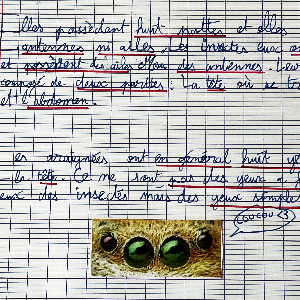 lles possèdent huit pattes et elles
antennes ni ailes. Les insectes eux on
et possèdent des ailes et/ou des antennes. Leur
composé de deux parties : La tête où se tr
et l'abdomen.
es araignées ont en général huit ye
la tête. Ce ne sont pas des yeux
eux des insectes mais des yeux simples
COUCOU <3